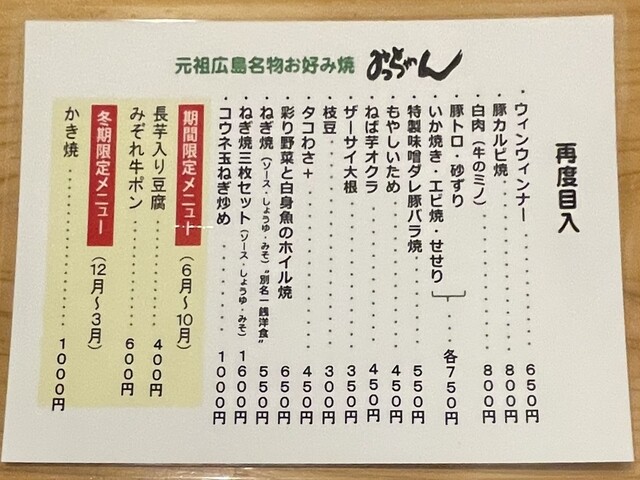 元祖広島名物お好み焼 みっちゃん
再度目入
ウィンウィンナー 650円
豚カルビ焼 800円
白肉（牛のミノ） 800円
豚トロ・砂ずり
いか焼き・エビ焼・せせり 各750円
特製味噌ダレ豚バラ焼 550円
もやしいため 450円
ねば芋オクラ 450円
ザーサイ大根 350円
枝豆 300円
タコわさ＋ 450円
彩り野菜と白身魚のホイル焼 650円
ねぎ焼（ソース・しょうゆ・みそ）“別名一銭洋食” 550円
ねぎ焼三枚セット（ソース・しょうゆ・みそ） 1600円
コウネ玉ねぎ炒め 1000円
期間限定メニュー（6月〜10月）
長芋入り豆腐 400円
みぞれ牛ポン 600円
冬期限定メニュー（12月〜3月）
かき焼 1000円